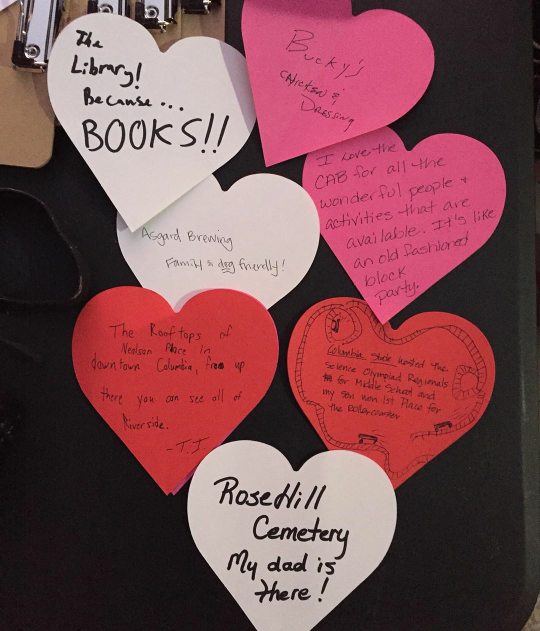 The
Library!
Because...
BOOKS!!
Bucky's
Chicken &
Dressing
I Love the
CAB for all the
wonderful people +
activities that are
available. It's like
an old fashioned
block
party.
Asgard Brewing
Family & dog friendly!
The Rooftops of
Neelson Place in
downtown Columbia, from up
there you can see all of
Riverside.
-T.J
Columbia State hosted the
Science Olympiad Regionals
for Middle School and
my son won 1st Place for
the Rollercoaster
RoseHill
Cemetery
My dad is
There!